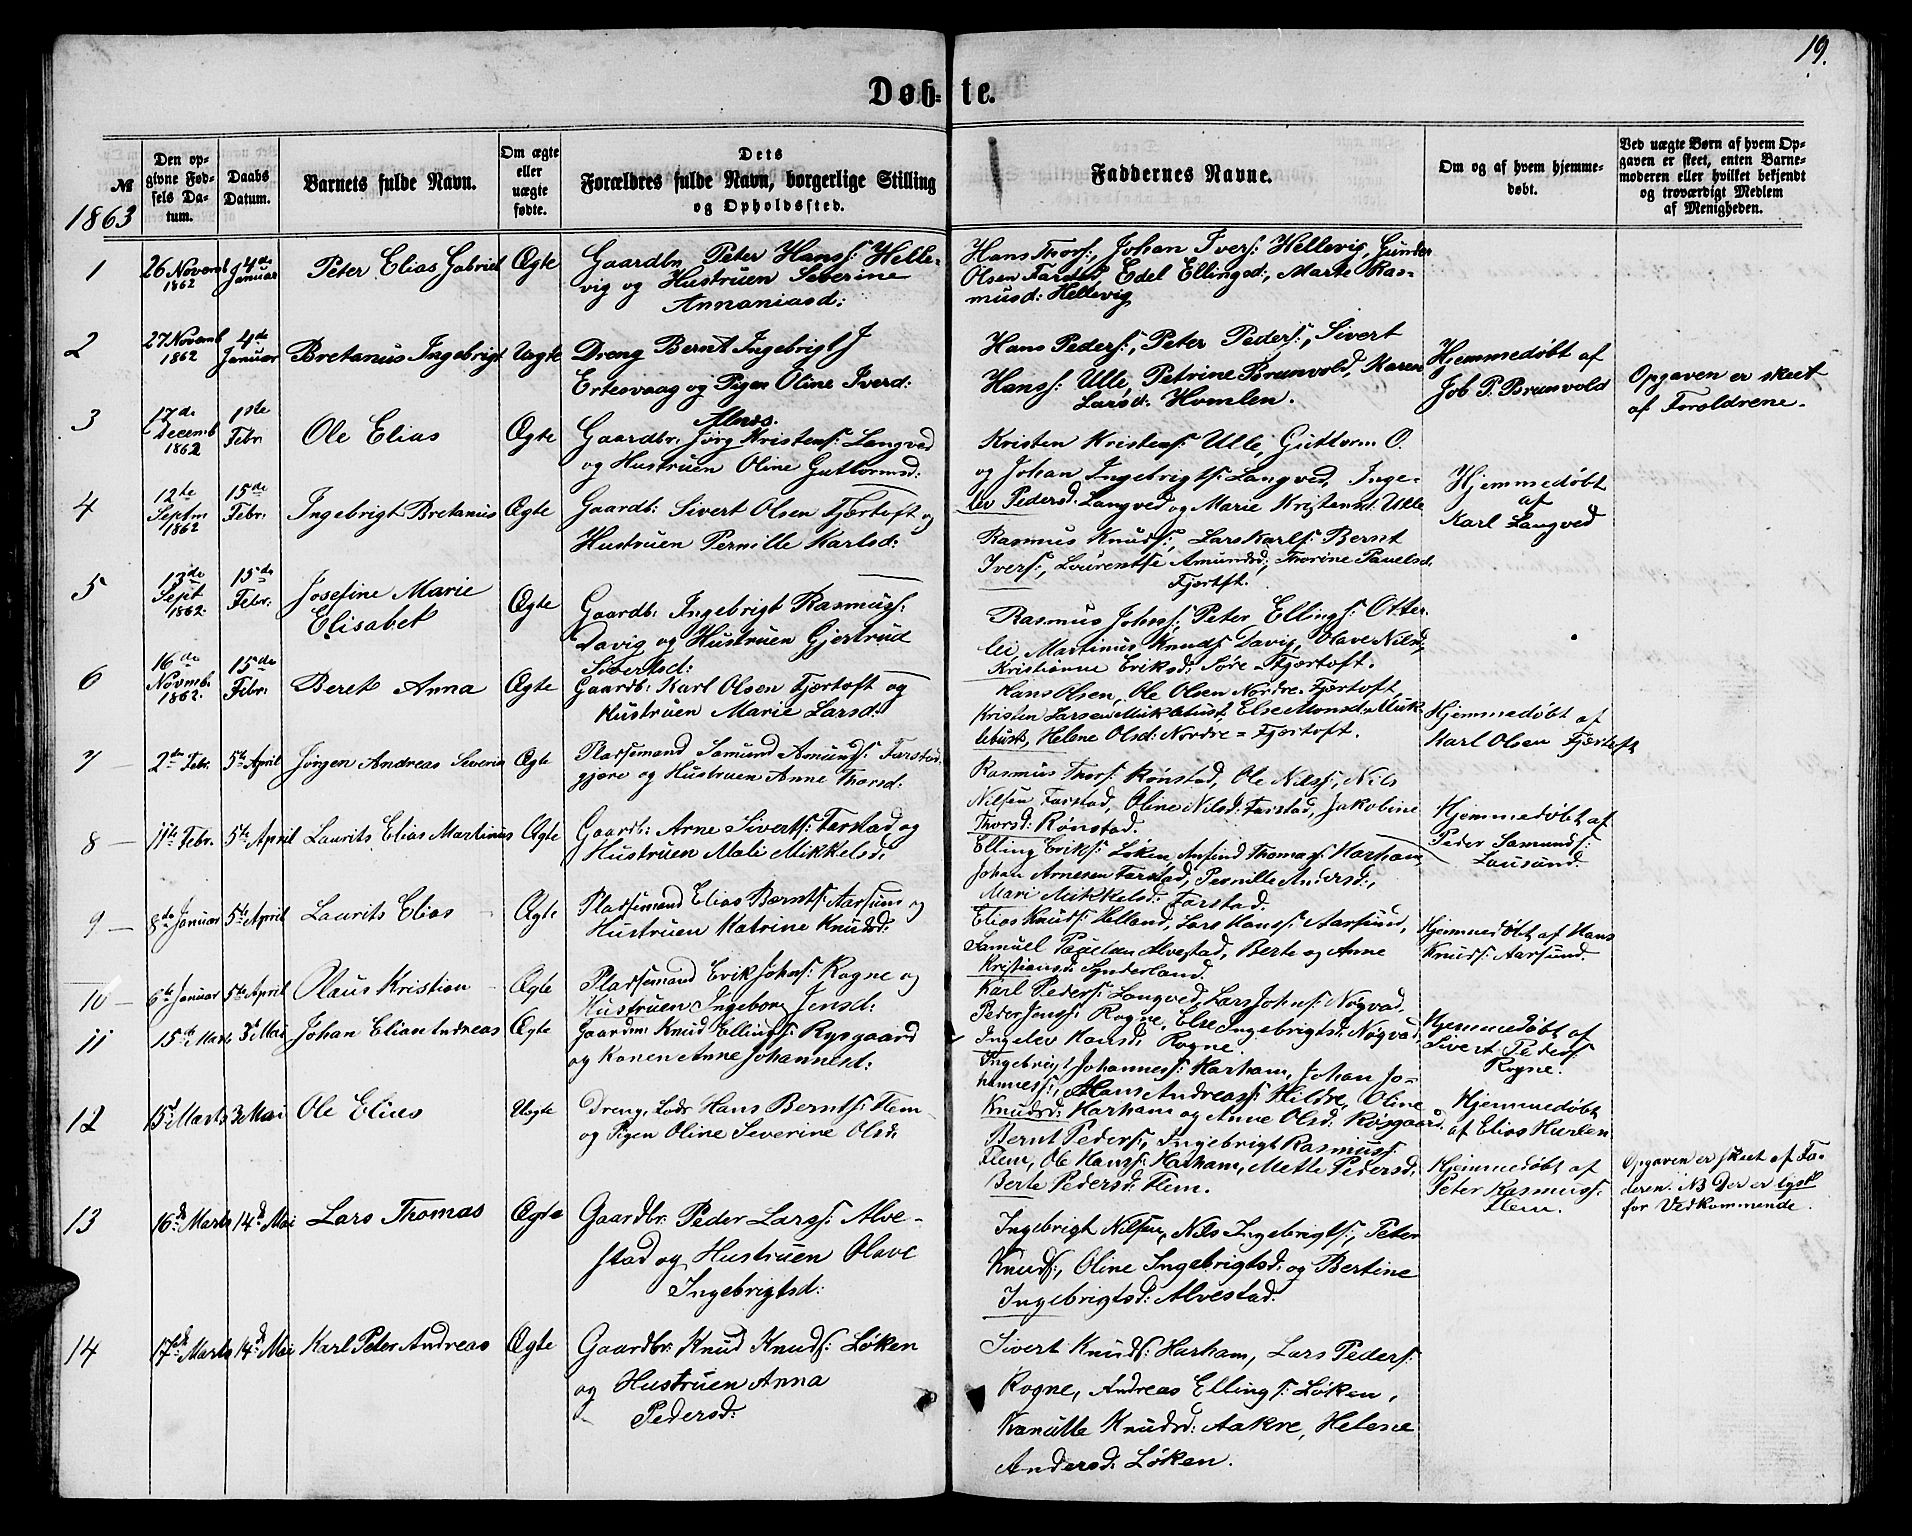 19.
Døbte.
№
1863
Den op-
givne Fød-
sels Da-
tum.
Daabs
Datum.
Barnets fulde Navn.
Om ægte
eller
uægte
fødte.
Dets
Forældres fulde Navn, borgerlige Stilling
og Opholdssted.
Faddernes Navne.
Om og af hvem hjemme-
døbt.
Ved uægte Børn af hvem Op-
gaven er skeet, enten Barne-
moderen eller hvilket bekjendt
og troværdigt Medlem
af Menigheden.
1
26 Novemb
1862
4de
Januar
Peter Elias Gabriel
Ægte
Gaardbr. Peter Hanss: Helle-
vig og Hustruen Severine
Annaniasd:
Hans Thors:, Johan Ivers: Hellevig, Gunder
Olsen Farstad, Edel Ellingsd:, Marte Ras-
musd: Hellevig
2
27 Novemb
1862
4de
Januar
Bretanus Ingebrigt
Uægte
Dreng Bernt Ingebrigt J
Ertesvaag og Pigen Oline Iverd:
Alnes.
Hans Peders:, Peter Peders:, Sivert
Hanss: Ulle, Petrine Brunvold, Karen
Larsd: Homlen.
Hjemmedøbt af
Job P. Brunvold
Opgaven er skeet
af Foroldrene.
3
17de
Decemb
1862
1ste
Febr:
Ole Elias
Ægte
Gaardbr: Jørg Kristens: Langved
og Hustruen Oline Guttormsd:
Kristen Kristens: Ulle, Guttorm O.
og Johan Ingebrigts: Langved, Inge-
lev Pedersd: Langved og Marie Kristensd: Ulle
4
12te
Septr.
1862
15de
Febr:
Ingebrigt Bretanus
Ægte
Gaardb: Sivert Olsen Fjærtoft og
Hustruen Pernille Karlsd:
Rasmus Knuds:, Lars Karls: Bernt
Ivers:, Lourentse Amundsd:, Thorine Pauelsd.
Fjærtoft.
Hjemmedøbt
af
Karl Langved
5
13de
Sept
1862.
15de
Febr:
Josefine Marie
Elisabet
Ægte
Gaardb: Ingebrigt Rasmuss:
Davig og Hustruen Gjertrud
Sivertsd:
Rasmus Johns:, Peter Ellings: Otter-
lei, Martinus Knuds: Davig, Olave Nilsd,
Kristianne Eriksd: Søre-Fjærtoft.
6
16de
Novmb.
1862.
15de
Febr:
Beret Anna
Ægte
Gaardb: Karl Olsen Fjærtoft og
Hustruen Marie Larsd:
Hans Olsen, Ole Olsen Nordre-Fjærtoft,
Kristen Larsen Muklebust, Else Monsd: Muk-
lebust, Helene Olsd: Nordre = Fjærtoft.
Hjemmedøbt af
Karl Olsen Fjærtoft
7
2de Febr.
5te April
Jørgen Andreas Severin
Ægte
Pladsemand Samund Asmuss: Farstad-
gjære og Hustruen Anne Thorsd:
Rasmus Thors: Rønstad, Ole Nilss:, Nils
Nilsen Farstad, Oline Nilsd: Farstad, Jakobine
Thorsd: Rønstad.
8
11te Febr.
5te April
Laurits Elias Martinus
Ægte
Gaardb: Arne Siverts: Farstad og
Hustruen Mali Mikkelsd:
Elling Eriks: Løken, Amund Thomass: Harham,
Johan Arnesen Farstad, Pernille Andersd:,
Mari Mikkelsd: Farstad.
Hjemmedøbt af
Peder Samunds:
Lausund.
9
8de Januar
5te April
Laurits Elias
Ægte
Pladsemand Elias Bernts: Aarsund og
Hustruen Katrine Knudsd:
Elias Knuds: Helland, Lars Hanss: Aarsund,
Samuel Paulsen Alvestad, Berte og Anne
Kristiansd: Synderland.
Hjemmedøbt af Hans
Knuds: Aarsund.
10
6te Januar
5te April
Olaus Kristian
Ægte
Pladsemand Erik Johns: Rogne og
Hustruen Ingeborg Jensd:
Karl Peders: Langved, Lars Johns: Nøgvad,
Peder Jenss: Rogne, Else Ingebrigtsd: Nøgvad,
Ingelev Hansd: Rogne.
Hjemmedøbt af
Sivert Peders:
Rogne.
11
15de Mart
3d Mai
Johan Elias Andreas
Ægte
Gaardm: Knud Ellings: Rysgaard
og Konen Anne Johannesd:
Ingebrigt Johanness: Harham, Johan Jo-
hanness:, Hans Andreass: Hildre, Oline
Knudsd: Harham og Anne Olsd: Røsgaard.
Hjemmedøbt
af Elias Hurlen
12
15d Marts
3 Mai
Ole Elias
Uægte
Dreng, Lods Hans Bernts: Flem
og Pigen Oline Severine Olsd:
Bernt Peders:, Ingebrigt Rasmuss:
Flem, Ole Hanss: Harham, Mette Pedersd:
Berte Pedersd: Flem.
Hjemmedøbt af
Peter Rasmuss:
Flem.
Opgaven er skeet af Fa-
deren. NB Der er lyst
for Vedkommende.
13
16de Marts
14d Mai
Lars Thomas
Ægte
Gaardbr: Peder Larss: Alve-
stad og Hustruen Olave
Ingebrigtsd:
Ingebrigt Nilsen, Nils Ingebrigts:, Peter
Knuds:, Oline Ingebrigtsd: og Bertine
Ingebrigtsd: Alvestad.
14
17de Marts
14d Mai
Karl Peter Andreas
Ægte
Gaardbr: Knud Knuds: Løken
og Hustruen Anna
Pedersd:
Sivert Knuds: Harham, Lars Peders:
Rogne, Andreas Ellings: Løken,
Kanutte Knudsd: Aakre, Helene
Andersd: Løken.